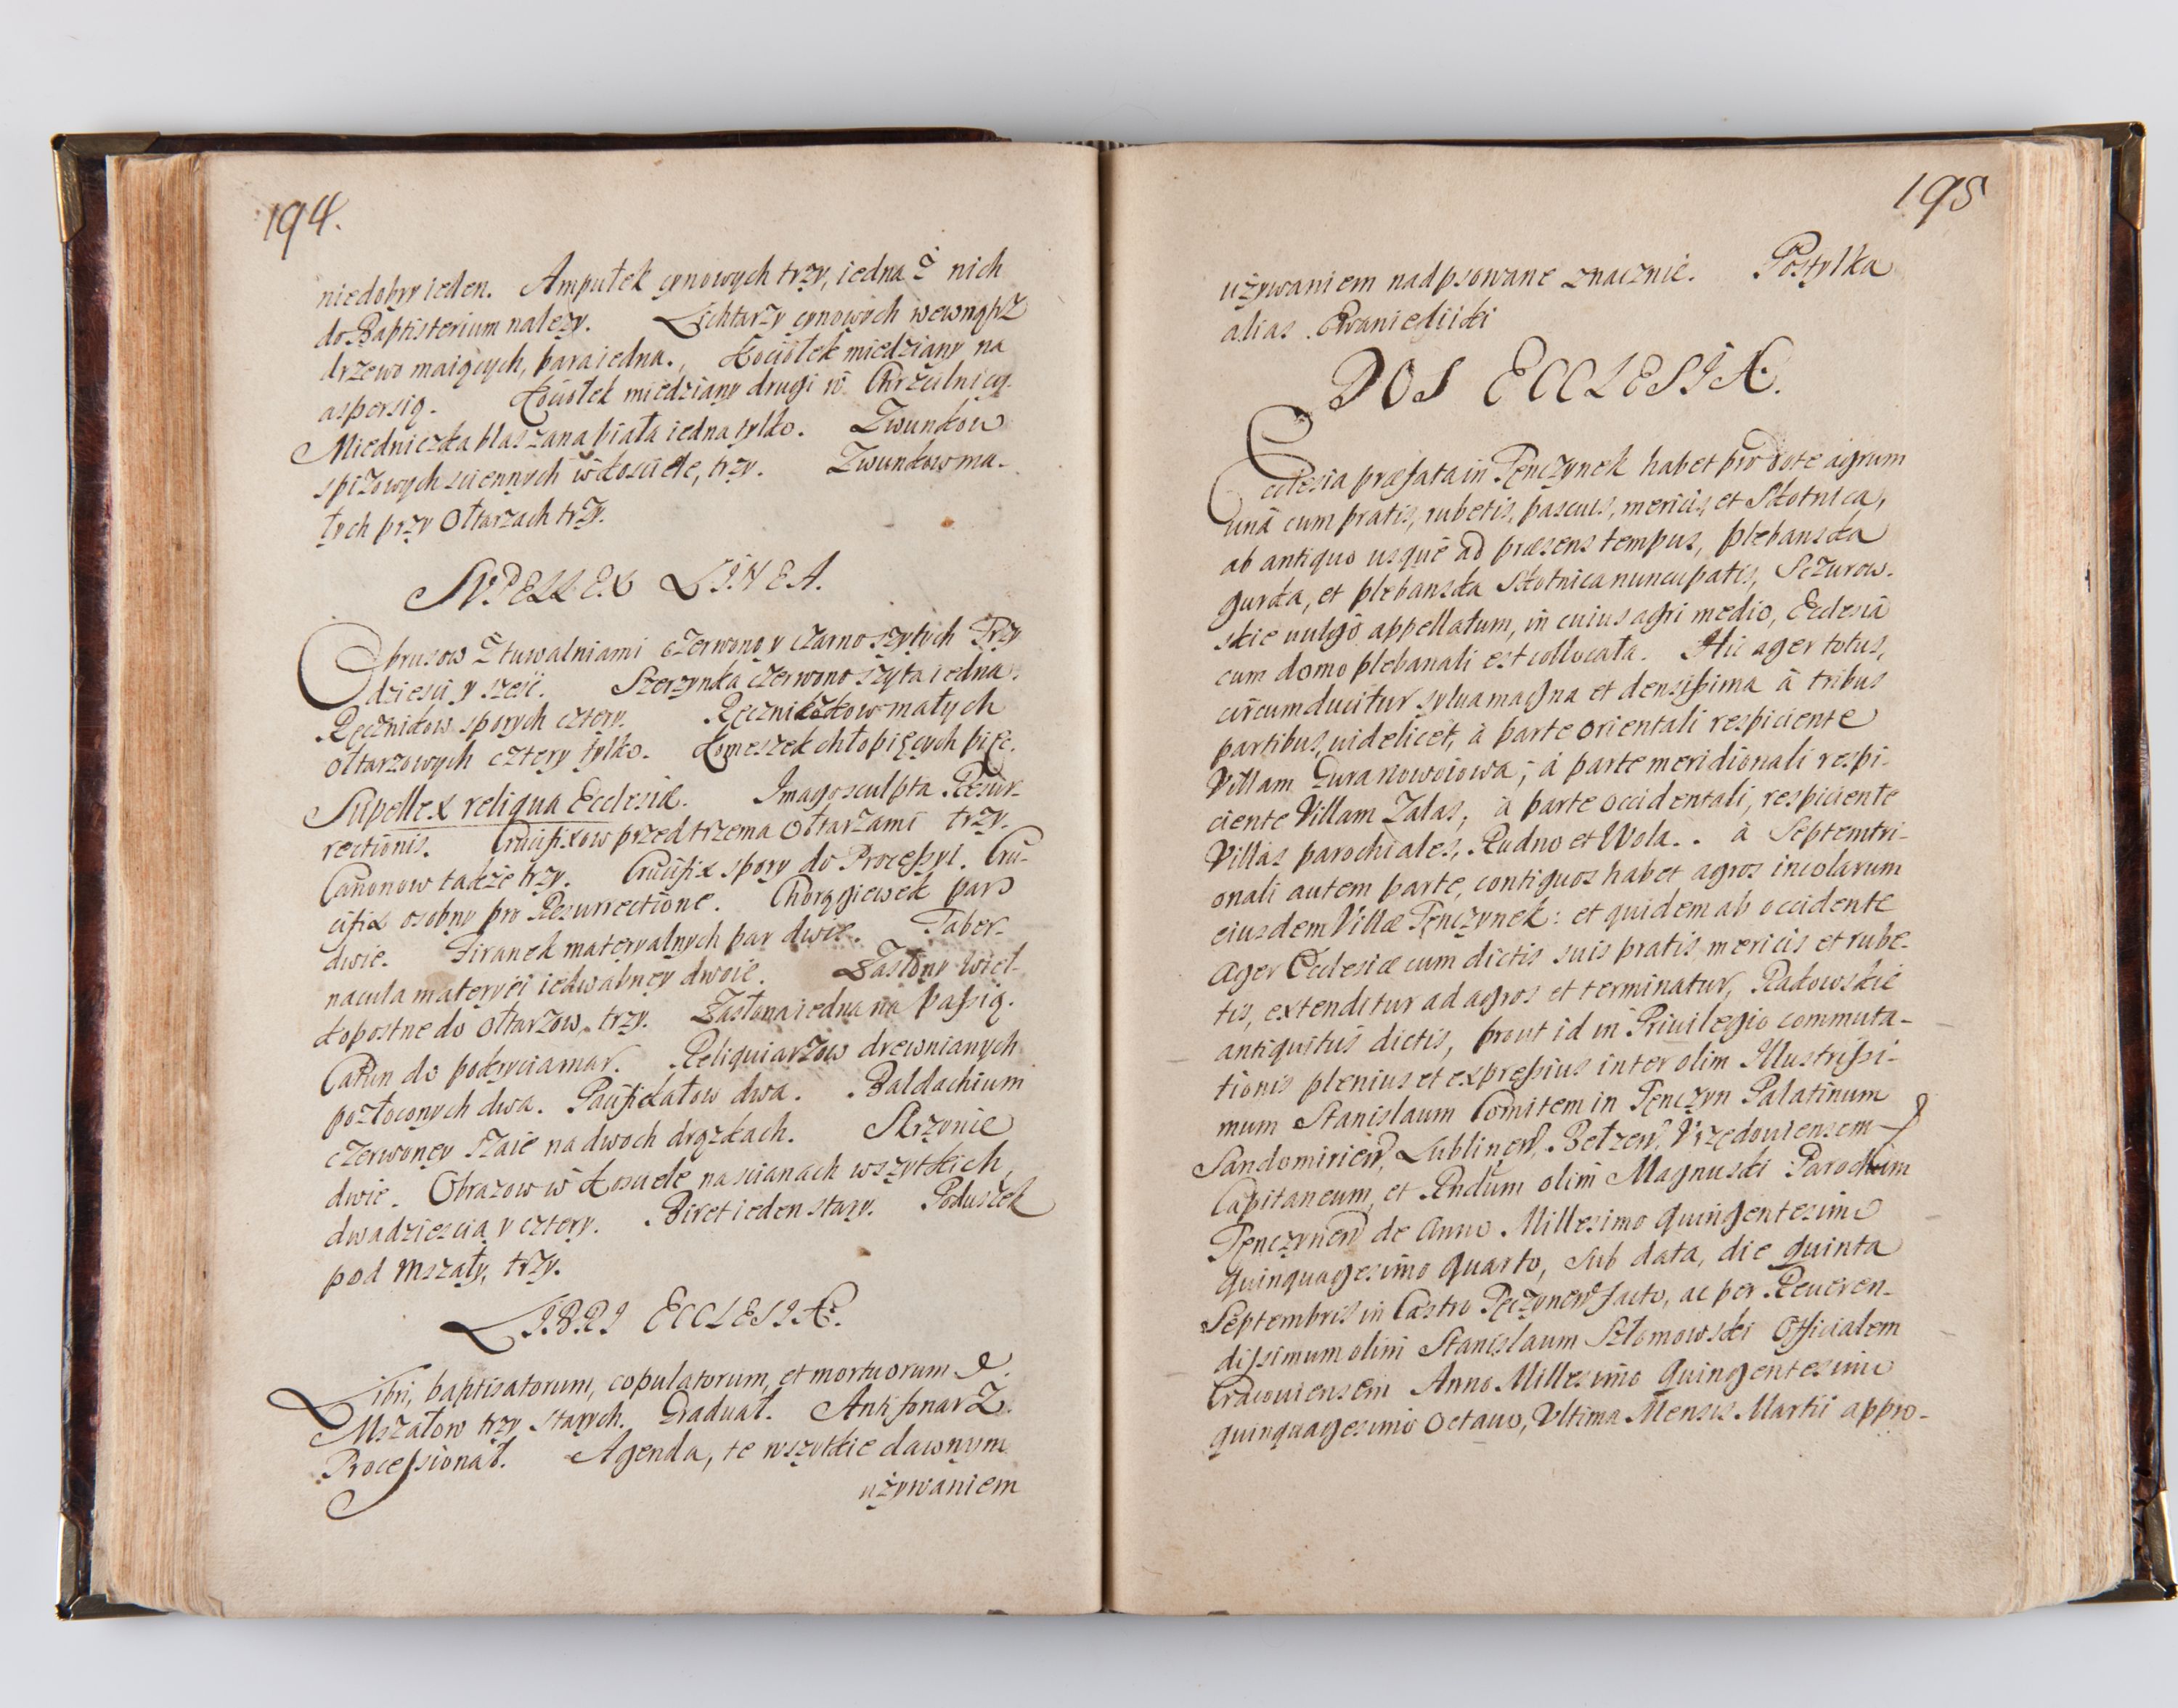 194.
niedobry ieden. Ampułek cynowych trzy, iedna z nich
do Baptisterium nalezy. Lichtarzy cynowych wewnątrz
drzewo maiących, para iedna. Kociołek miedziany na
aspersią. Kociołek miedziany drugi w Chrzcilnicy.
Miedniczka blaszana biała iedna tylko. Zwunkow
spizowych sciennych w kosciele, trzy. Zwunkow ma-
łych przy Ołtarzach trzy.
SUPELLEX LINEA.
Obrusow z tuwalniami czerwono y czarno szytych Trzy
dziesci y szesc. Szerzynka czerwono szyta iedna.
Ręcznikow sporych cztery. Ręczniczkow małych
ołtarzowych cztery tylko. Komeszek chłopięcych pięc.
Supellex reliqua Ecclesiæ. Imago sculpta Resur-
rectionis. Crucifixow przed trzema Ołtarzami trzy.
Canonow takze trzy. Crucifix spory do Processyi. Cru-
cifix osobny pro Resurrectione. Chorągiewek par
dwie. Firanek materyalnych par dwie. Taber-
nacula materyei iedwabney dwoie. Zasłony wiel-
kopostne do Ołtarzow, trzy. Zasłona iedna na Passią.
Całun do pokrycia mar. Reliquiarzow drewnianych
pozłoconych dwa. Pacifikałow dwa. Baldachium
czerwoney Szaie na dwoch drązkach. Skrzynie
dwie. Obrazow w Kosciele na scianach wszytkich,
dwadziescia y cztery. Biret ieden stary. Poduszek
pod Mszały, trzy.
LIBRI ECCLESIÆ.
Libri, baptisatorum, copulatorum, et mortuorum
Mszałow trzy starych. Graduał. Antifonarz.
Processionał. Agenda, te wszytkie dawnym
używaniem
195
używaniem nadpsowane znacznie. Postylka
alias Ewanieliiki
DOS ECCLESIÆ.
Ecclesia præfata in Tęnczynek habet pro dote agrum
unà cum pratis, rubetis, pascuis, mericis, et Skotnica,
ab antiquo usque ad præsens tempus, plebanska
gurka, et plebanska Skotnica nuncupatis, Sczurow-
skie uulgò appellatum, in cuius agri medio, Ecclesia
cum domo plebanali est collocata. Hic ager totus,
circumducitur sylua magna et densissima à tribus
partibus, uidelicet, à parte orientali respiciente
Villam Gura nowoiowa; à parte meridionali respi-
ciente Villam Zalas; à parte occidentali, respiciente
Villas parochiales, Rudno et Wola. à Septemtri-
onali autem parte, contiguos habet agros incolarum
eiusdem Villæ Tęnczynek: et quidem ab occidente
ager Ecclesiæ cum dictis suis pratis, mericis et rube-
tis, extenditur ad agros et terminatur, Rakowskie
antiquitus dictis, prout id in Priuilegio commuta-
tionis plenius et expressius inter olim Illustrissi-
mum Stanislaum Comitem in Tęnczyn Palatinum
Sandomirien, Lublinen, Belzen, Vrzedouiensem
Capitaneum, et Rndum olim Magnuski Parochum
Tęnczynen de Anno Millesimo quingentesimo
quinquagesimo quarto, sub data, die quinta
Septembris in Castro Tęczynen facto, ac per Reueren-
dissimum olim Stanislaum Szlomowski Officialem
Cracouiensem Anno Millesimo quingentesimo
quinquagesimo octauo, Vltima Mensis Martii appro-